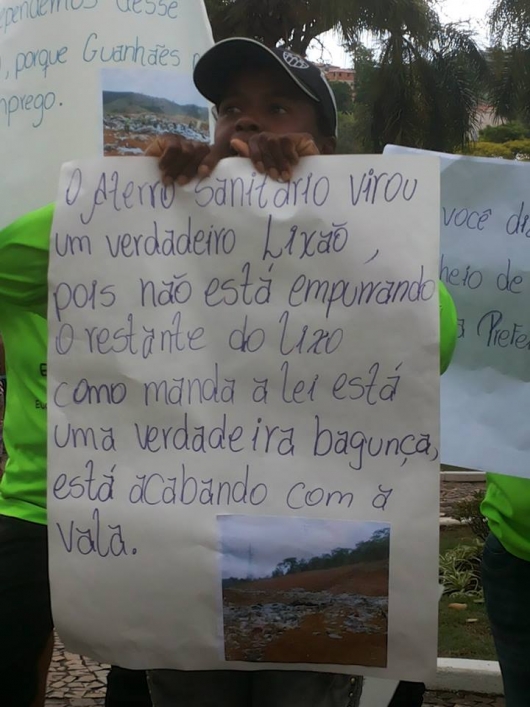 desse
, porque Guanhães
mprego.
O Aterro Sanitário virou
um verdadeiro Lixão,
pois não está empurrando
O restante do Lixo
como manda a lei está
uma verdadeira bagunça,
está acabando com a
vala.
você
de
a